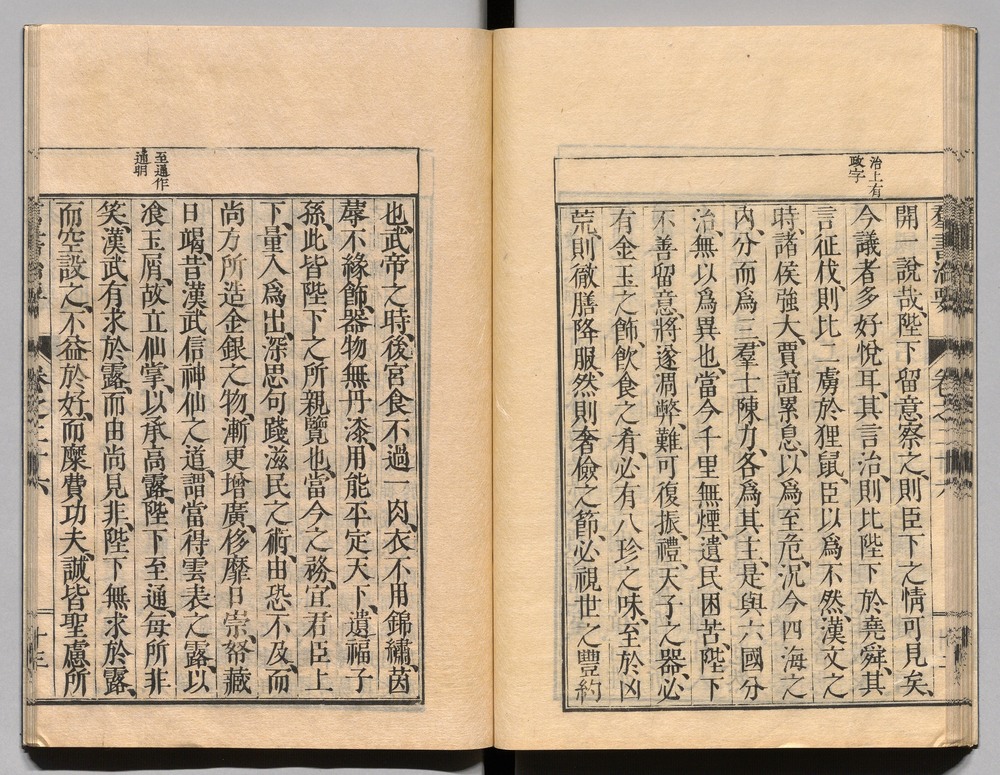 治上有
政字
開一說哉、陛下留意察之、則臣下之情可見矣、
今議者多好悅耳、其言治、則比陛下於堯舜、其
言征伐、則比二虜於狸鼠、臣以爲不然、漢文之
時、諸侯強大、賈誼累息、以爲至危、况今四海之
內、分而爲三、羣士陳力、各爲其主、是與六國分
治、無以爲異也、當今千里無煙、遺民困苦、陛下
不善留意、將遂凋弊、難可復振、禮、天子之器、必
有金玉之飾、飲食之肴、必有八珍之味、至於凶
荒、則徹膳降服、然則奢儉之節、必視世之豐約
至通作
通明
也、武帝之時、後宮食不過一肉、衣不用錦繡、茵
蓐不緣飾、器物無丹漆、用能平定天下、遺福子
孫、此皆陛下之所親覽也、當今之務、宜君臣上
下、量入爲出、深思句踐滋民之術、由恐不及、而
尚方所造金銀之物、漸更增廣、侈靡日崇、帑藏
日竭、昔漢武信神仙之道、謂當得雲表之露、以
飡玉屑、故立仙掌、以承高露、陛下至通、每所非
笑、漢武有求於露、而由尚見非、陛下無求於露、
而空設之、不益於好、而糜費功夫、誠皆聖慮所
卷之二十六
十三